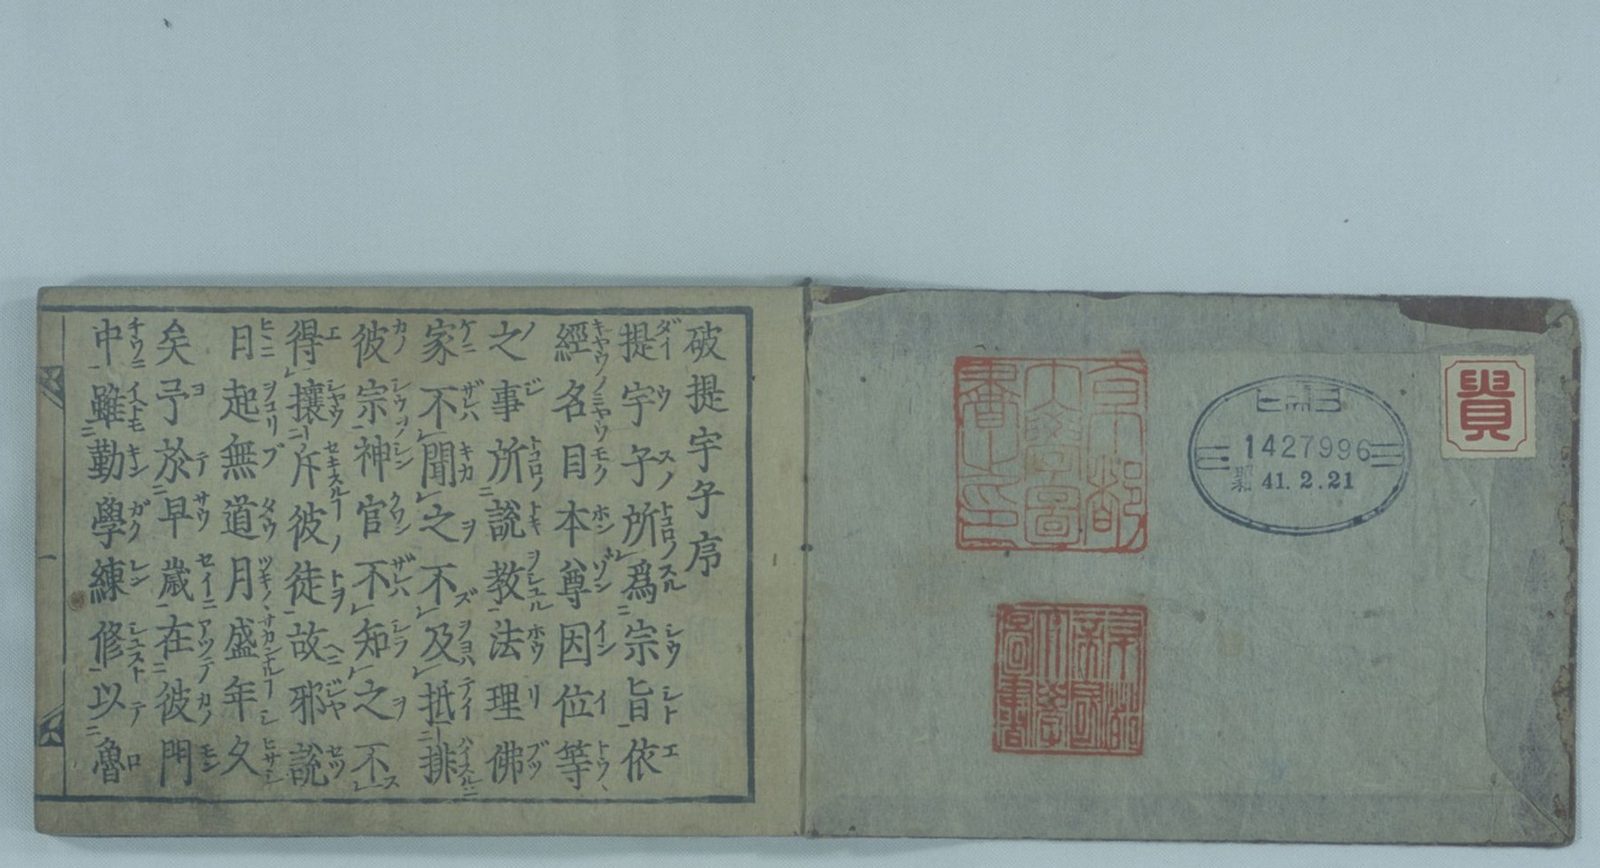 貴
1427996
昭和 41.2.21
京都大學圖書之印
京都帝國大學圖書
破提宇子序
提宇子所爲宗旨依
經名目本尊因位等
之事所說教法理佛
家不聞之不及抵排
彼宗神官不知之不
得攘斥彼徒故邪說
日起無道月盛年久
矣予於早歲在彼門
中雖勤學練修以魯